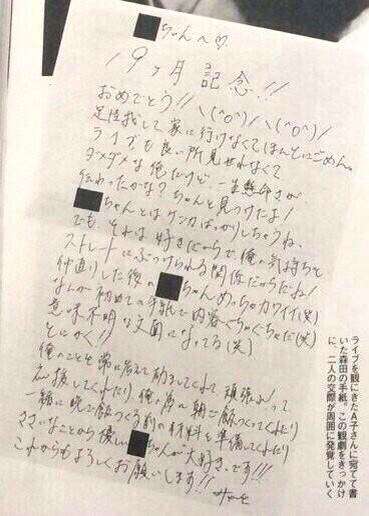 ちゃんへ♡
19ヶ月記念!!
おめでとう!! \(^o^)/ \(^o^)/
足怪我して家に行けなくてほんとにごめん。
ライブも良い所見せれなくて
ダメダメな俺だけど、一生懸命さが
伝わったかな?ちゃんと見つけたよ!
ちゃんとはケンカばっかりしちゃうね、
でもそれは好きだからで俺の気持ちを
ストレートにぶつけられる関係だからだね!
仲直りした後のちゃんめっちゃカワイイ(笑)
なんか初めての手紙で内容ぐちゃぐちゃだ(笑)
意味不明な文面になってる(笑)
とにかく!!
俺のことを常に考えて動いてくれて頑張って
応援してくれたり、俺の為に朝ご飯つくってくれたり
一緒に晩ご飯つくる前の材料を準備してくれたり
なことから優しいちゃんが大好きです!!!
これからもよろしくお願いします!!
ライブを観にきたA子さんに宛てて書
いた森田の手紙。この観劇をきっかけ
に、二人の交際が周囲に発覚していく